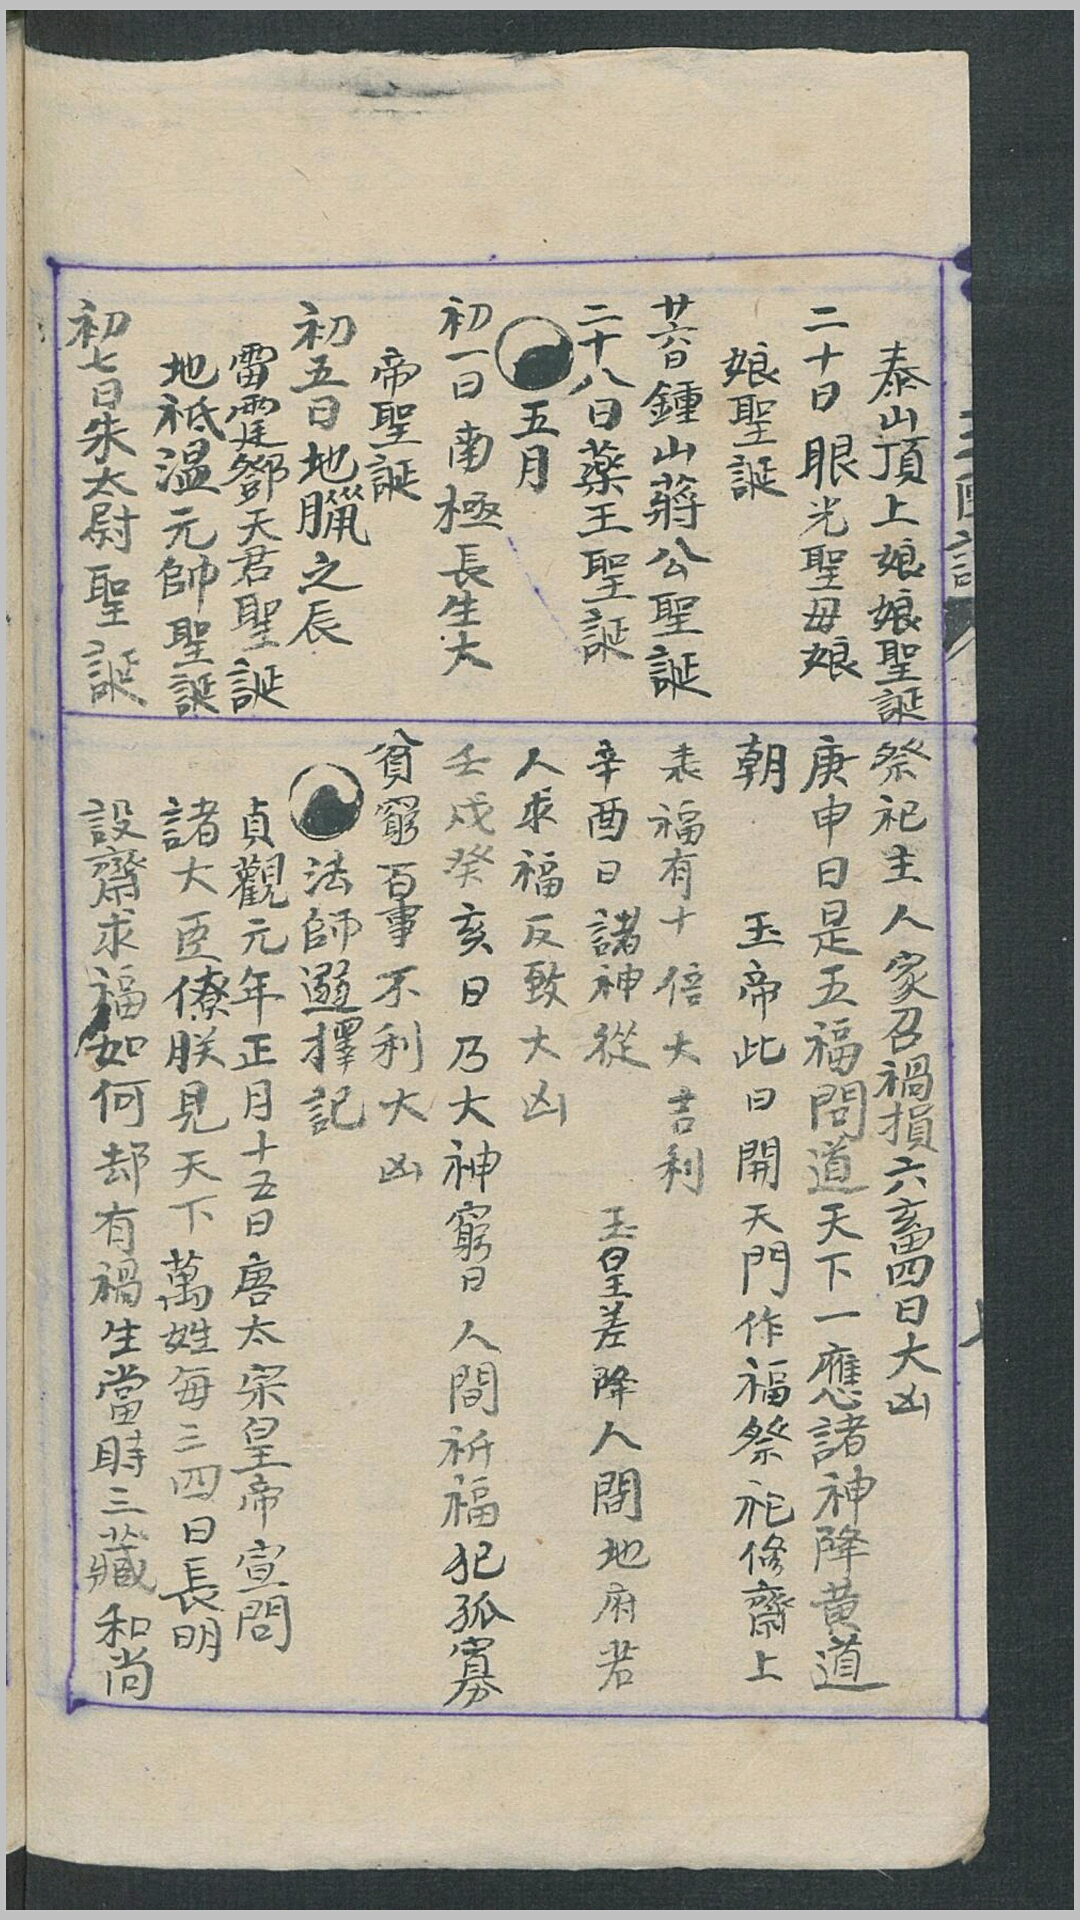 泰山頂上娘娘聖誕
二十日眼光聖母娘
娘聖誕
廿六日鍾山蔣公聖誕
二十八日藥王聖誕
五月
初一日南極長生大
帝聖誕
初五日地臘之辰
雷霆鄧天君聖誕
地祗溫元帥聖誕
初七日朱太尉聖誕
祭祀主人家召禍損六畜四日大凶
庚申日是五福問道天下一應諸神降黃道
朝 玉帝此日開天門作福祭祀修齋上
表福有十倍大吉利
辛酉日諸神從 玉皇差降人間地府若
人求福反致大凶
壬戌癸亥日乃大神窮日人間祈福犯孤寡
貧窮百事不利大凶
法師選擇記
貞觀元年正月十五日唐太宗皇帝宣問
諸大臣僚朕見天下萬姓每三四日長明
設齋求福如何却有禍生當時三藏和尚